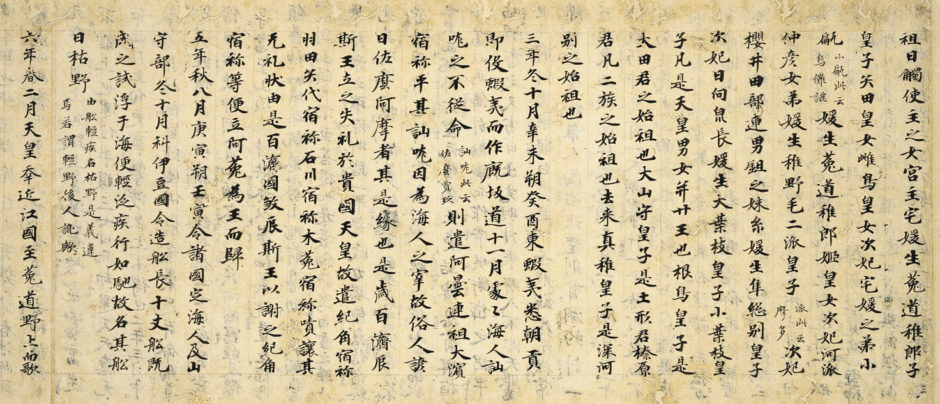 祖日觸使主之女宮主宅媛生菟道稚郎子
皇子矢田皇女雌鳥皇女次妃宅媛之弟小
甂小甂此云烏儺謎媛生菟道稚郎姬皇女次妃河派
仲彥女弟媛生稚野毛二派皇子派此云摩多次妃
櫻井田部連男鉏之妹糸媛生隼総別皇子
次妃日向泉長媛生大葉枝皇子小葉枝皇
子凡是天皇男女并廿王也根鳥皇子是
太田君之始祖也大山守皇子是土形君榛原
君凡二族之始祖也去来真稚皇子是深河
別之始祖也
三年冬十月辛未朔癸酉東蝦夷悉朝貢
即役蝦夷而作廐坂道十一月處々海人訕
哤之不從命訕哤此云佐麼賣玖則遣阿曇連祖大濱
宿祢平其訕哤因為海人之宰故俗人諺
曰佐麼阿摩者其是緣也是歲百濟辰
斯王立之失礼於貴國天皇故遣紀角宿祢
羽田矢代宿祢石川宿祢木菟宿祢嘖讓其
无礼狀由是百濟國敦辰斯王以謝之紀角
宿祢等便立阿菟為王而歸
五年秋八月庚寅朔壬寅令諸國定海人及山
守部冬十月科伊豆國令造舩長十丈舩既
成之試浮于海便輕泛疾行如馳故名其舩
曰枯野由舩輕疾名枯野是義違焉若謂輕野後人訛歟
六年春二月天皇幸近江國至菟道野上而歌